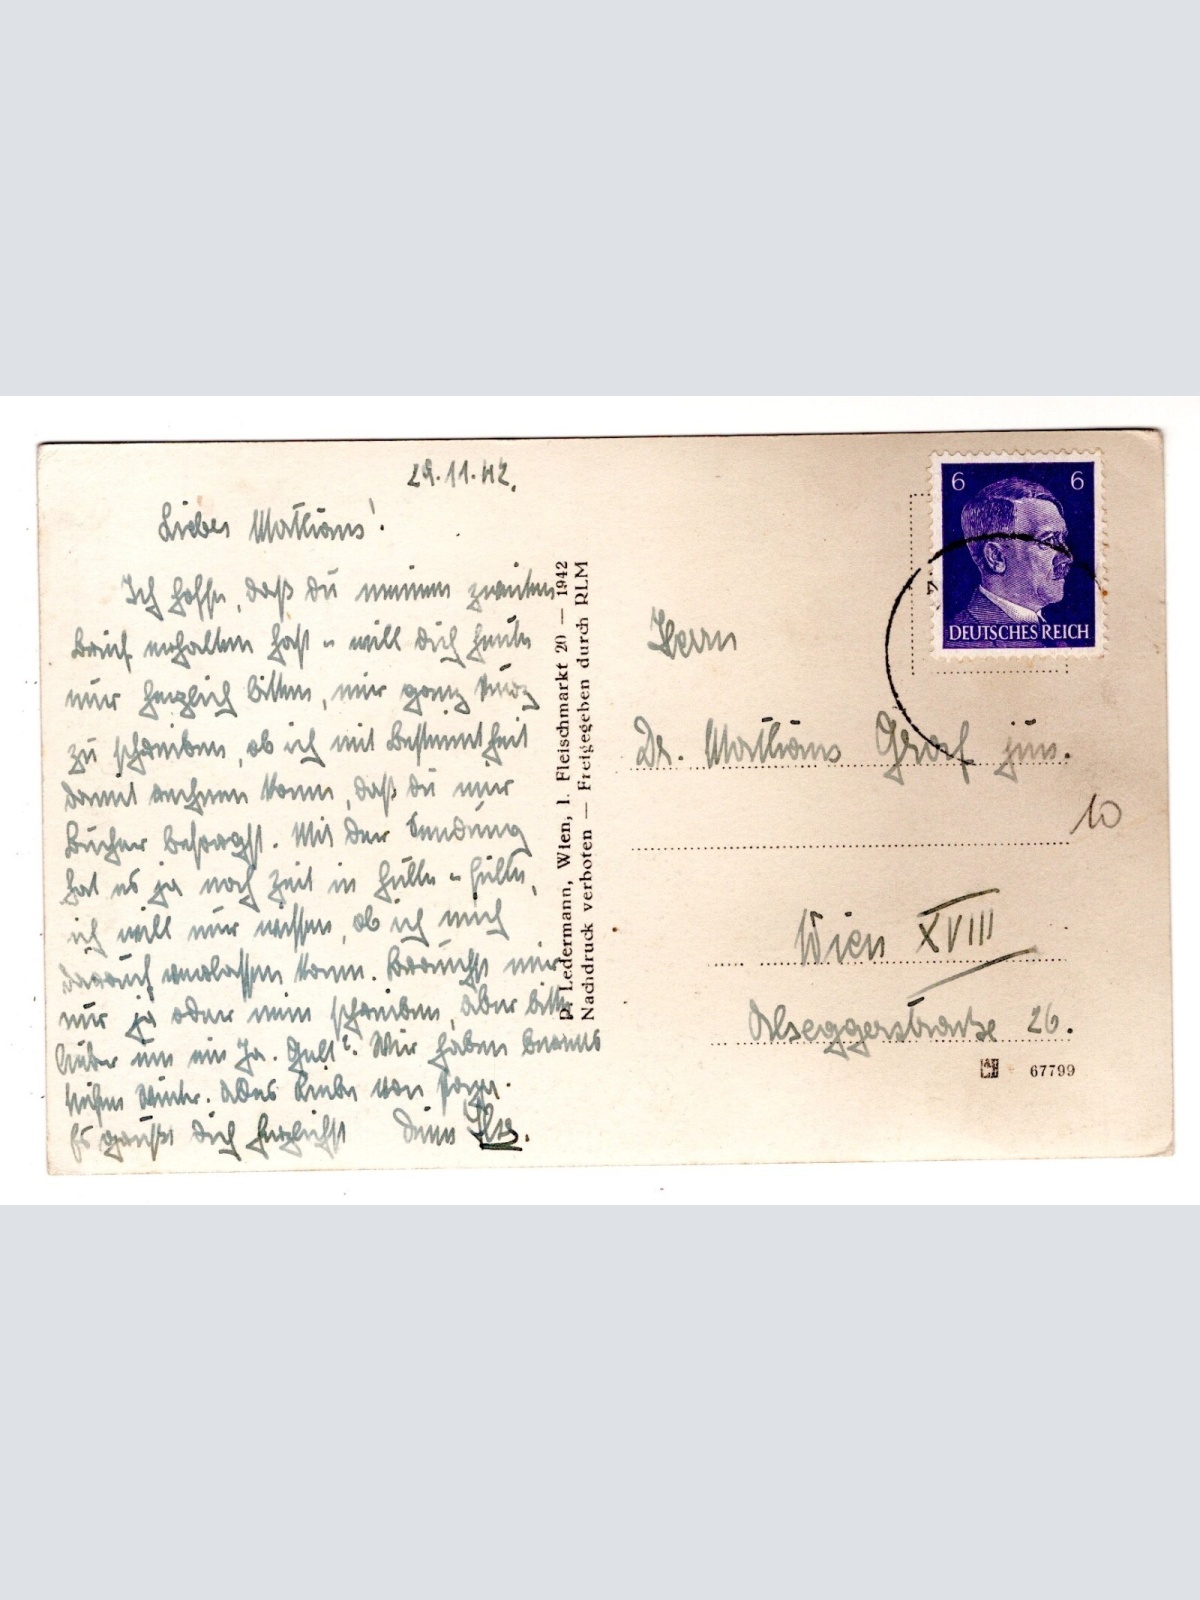 29.11.42.
Liebes Mathians!
Ich hoffe, daß du meinen zweiten
Brief erhalten hast - will dich heute
nur herzlich bitten, mir ganz kurz
zu schreiben, ob ich mit Bestimmtheit
damit rechnen kann, daß du mir
Bücher besorgst. Mit der Sendung
hat es ja noch Zeit in Hülle - Fülle,
ich will nur wissen, ob ich mich
darauf verlassen kann. Brauchst mir
nur ja oder nein schreiben, aber bitte
lieber um ein Ja. Gelt? Wir haben bereits
tiefen Winter. Alles Liebe von
Es grüßt dich herzlichst deine
P. Ledermann, Wien, I. Fleischmarkt 20 — 1942
Nachdruck verboten — Freigegeben durch RLM
6 6
DEUTSCHES REICH
Herrn
Dr. Mathians Graf jun.
10
Wien XVIII
Alseggerstraße 26.
67799